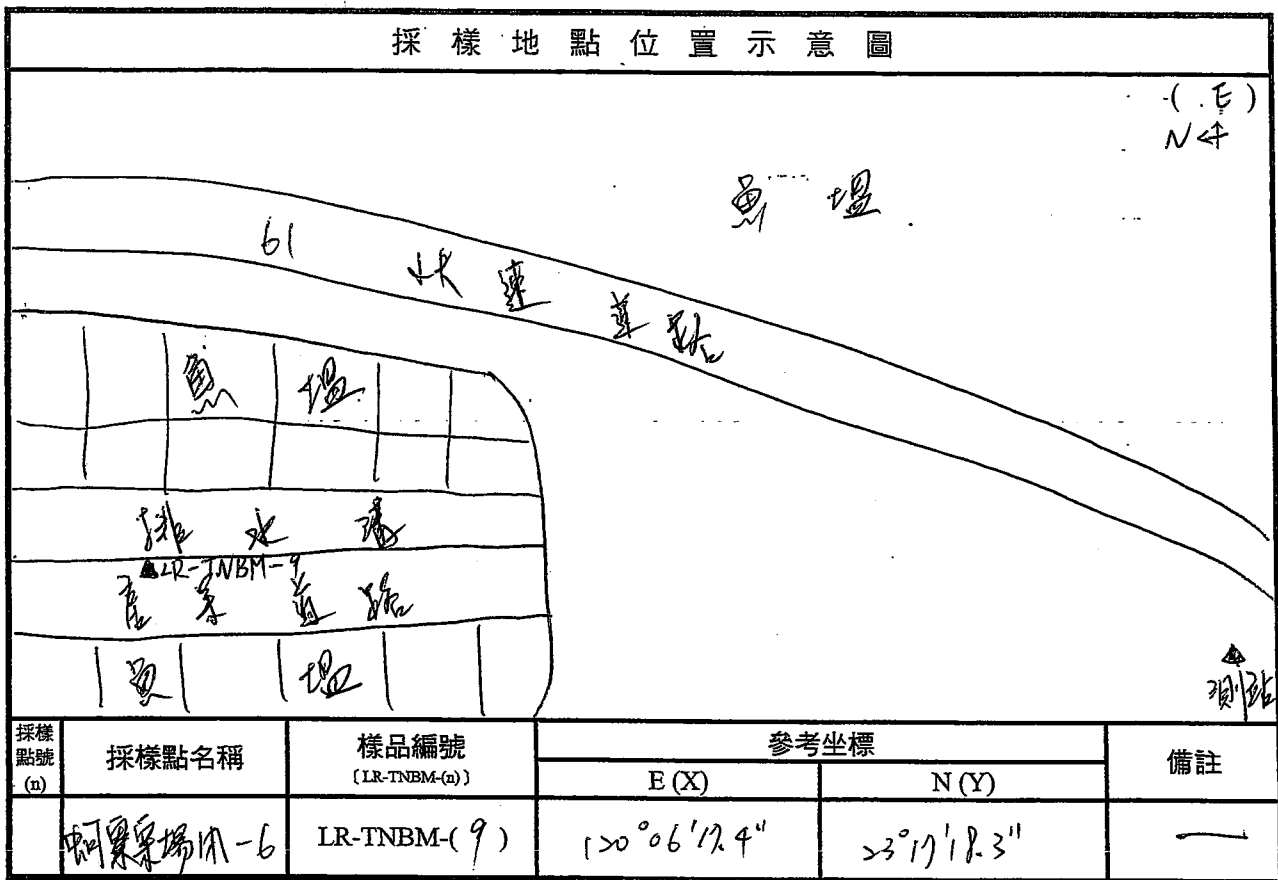 採樣地點位置示意圖
(E)
N
魚塭
61 快速道路
魚塭
排水溝
LR-TNBM-9
產業道路
魚塭
測站
採樣點號(n) 採樣點名稱 樣品編號 [LR-TNBM-(n)] 參考坐標 E (X) N (Y) 備註
-6 LR-TNBM-(9) 120°06'17.4" 23°17'18.3" —